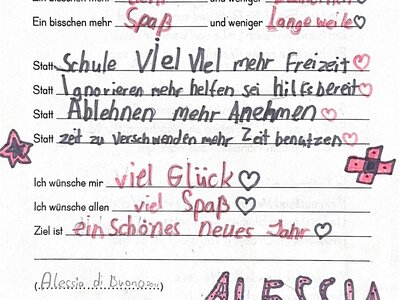 Ein bisschen mehr und weniger
Ein bisschen mehr Spaß und weniger langeweile
Statt Schule Viel Viel mehr Freizeit
Statt Ignorieren mehr helfen sei hilfsbereit
Statt Ablehnen mehr Anehmen
Statt zeit zu verschwenden mehr Zeit benutzen
Ich wünsche mir viel Glück
Ich wünsche allen viel Spaß
Ziel ist ein Schönes neues Jahr
(Alessia di
ALESSIA